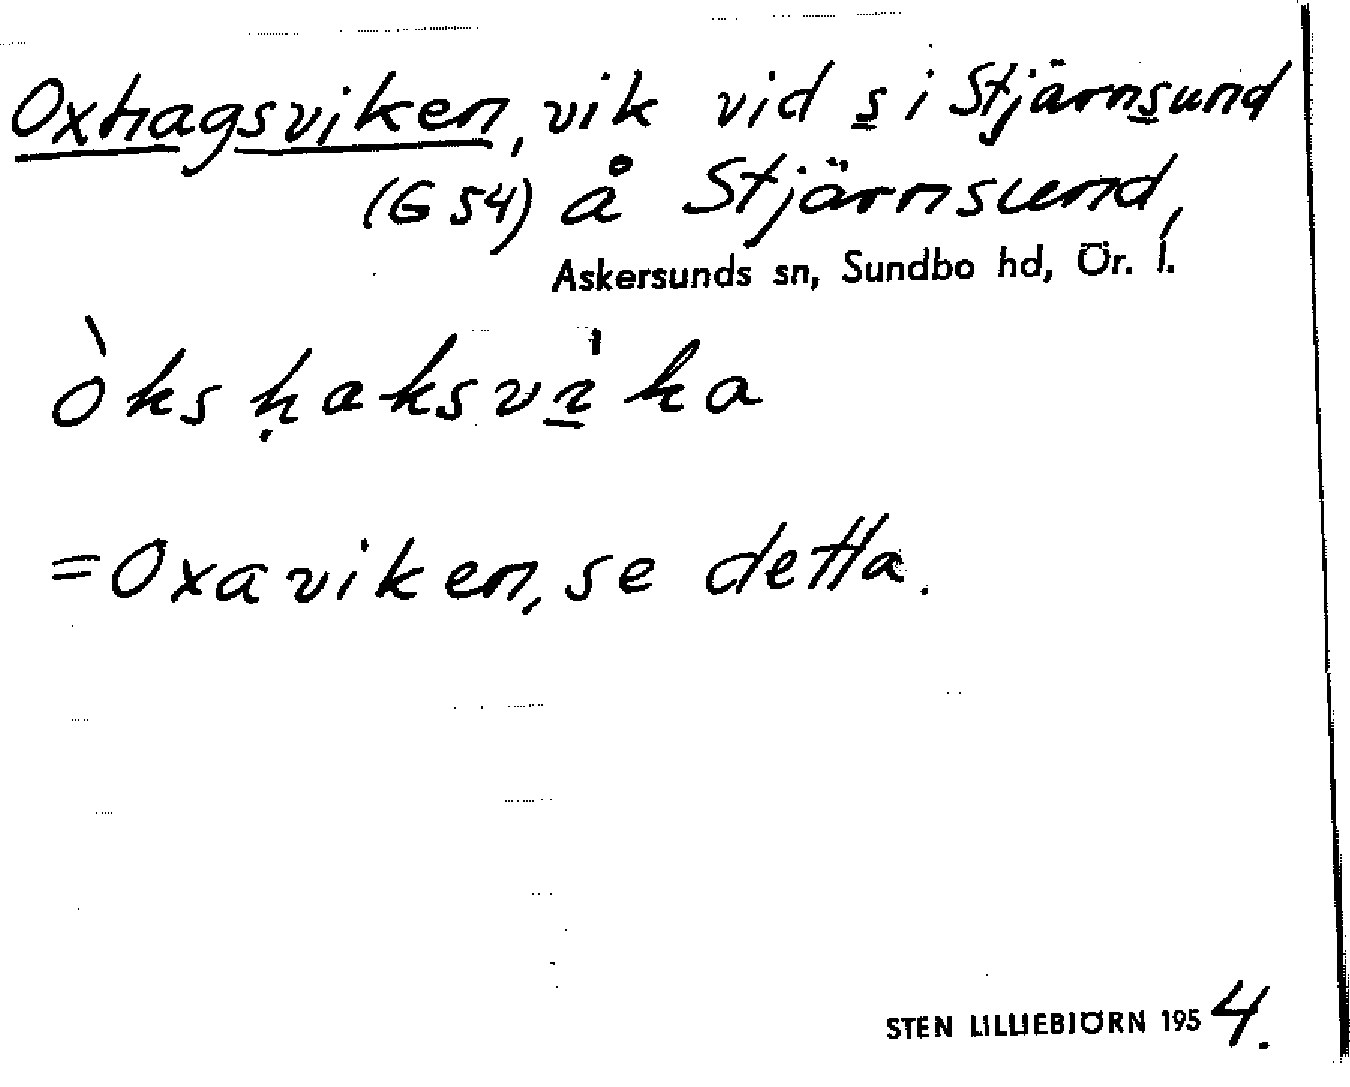 Oxhagsviken, vik vid s i Stjärnsund
(G 54) å Stjärnsund,
Askersunds sn, Sundbo hd, Ör. l.
òksḥaksvì̱ka
=Oxaviken, se detta.
STEN LILLIEBJÖRN 1954.